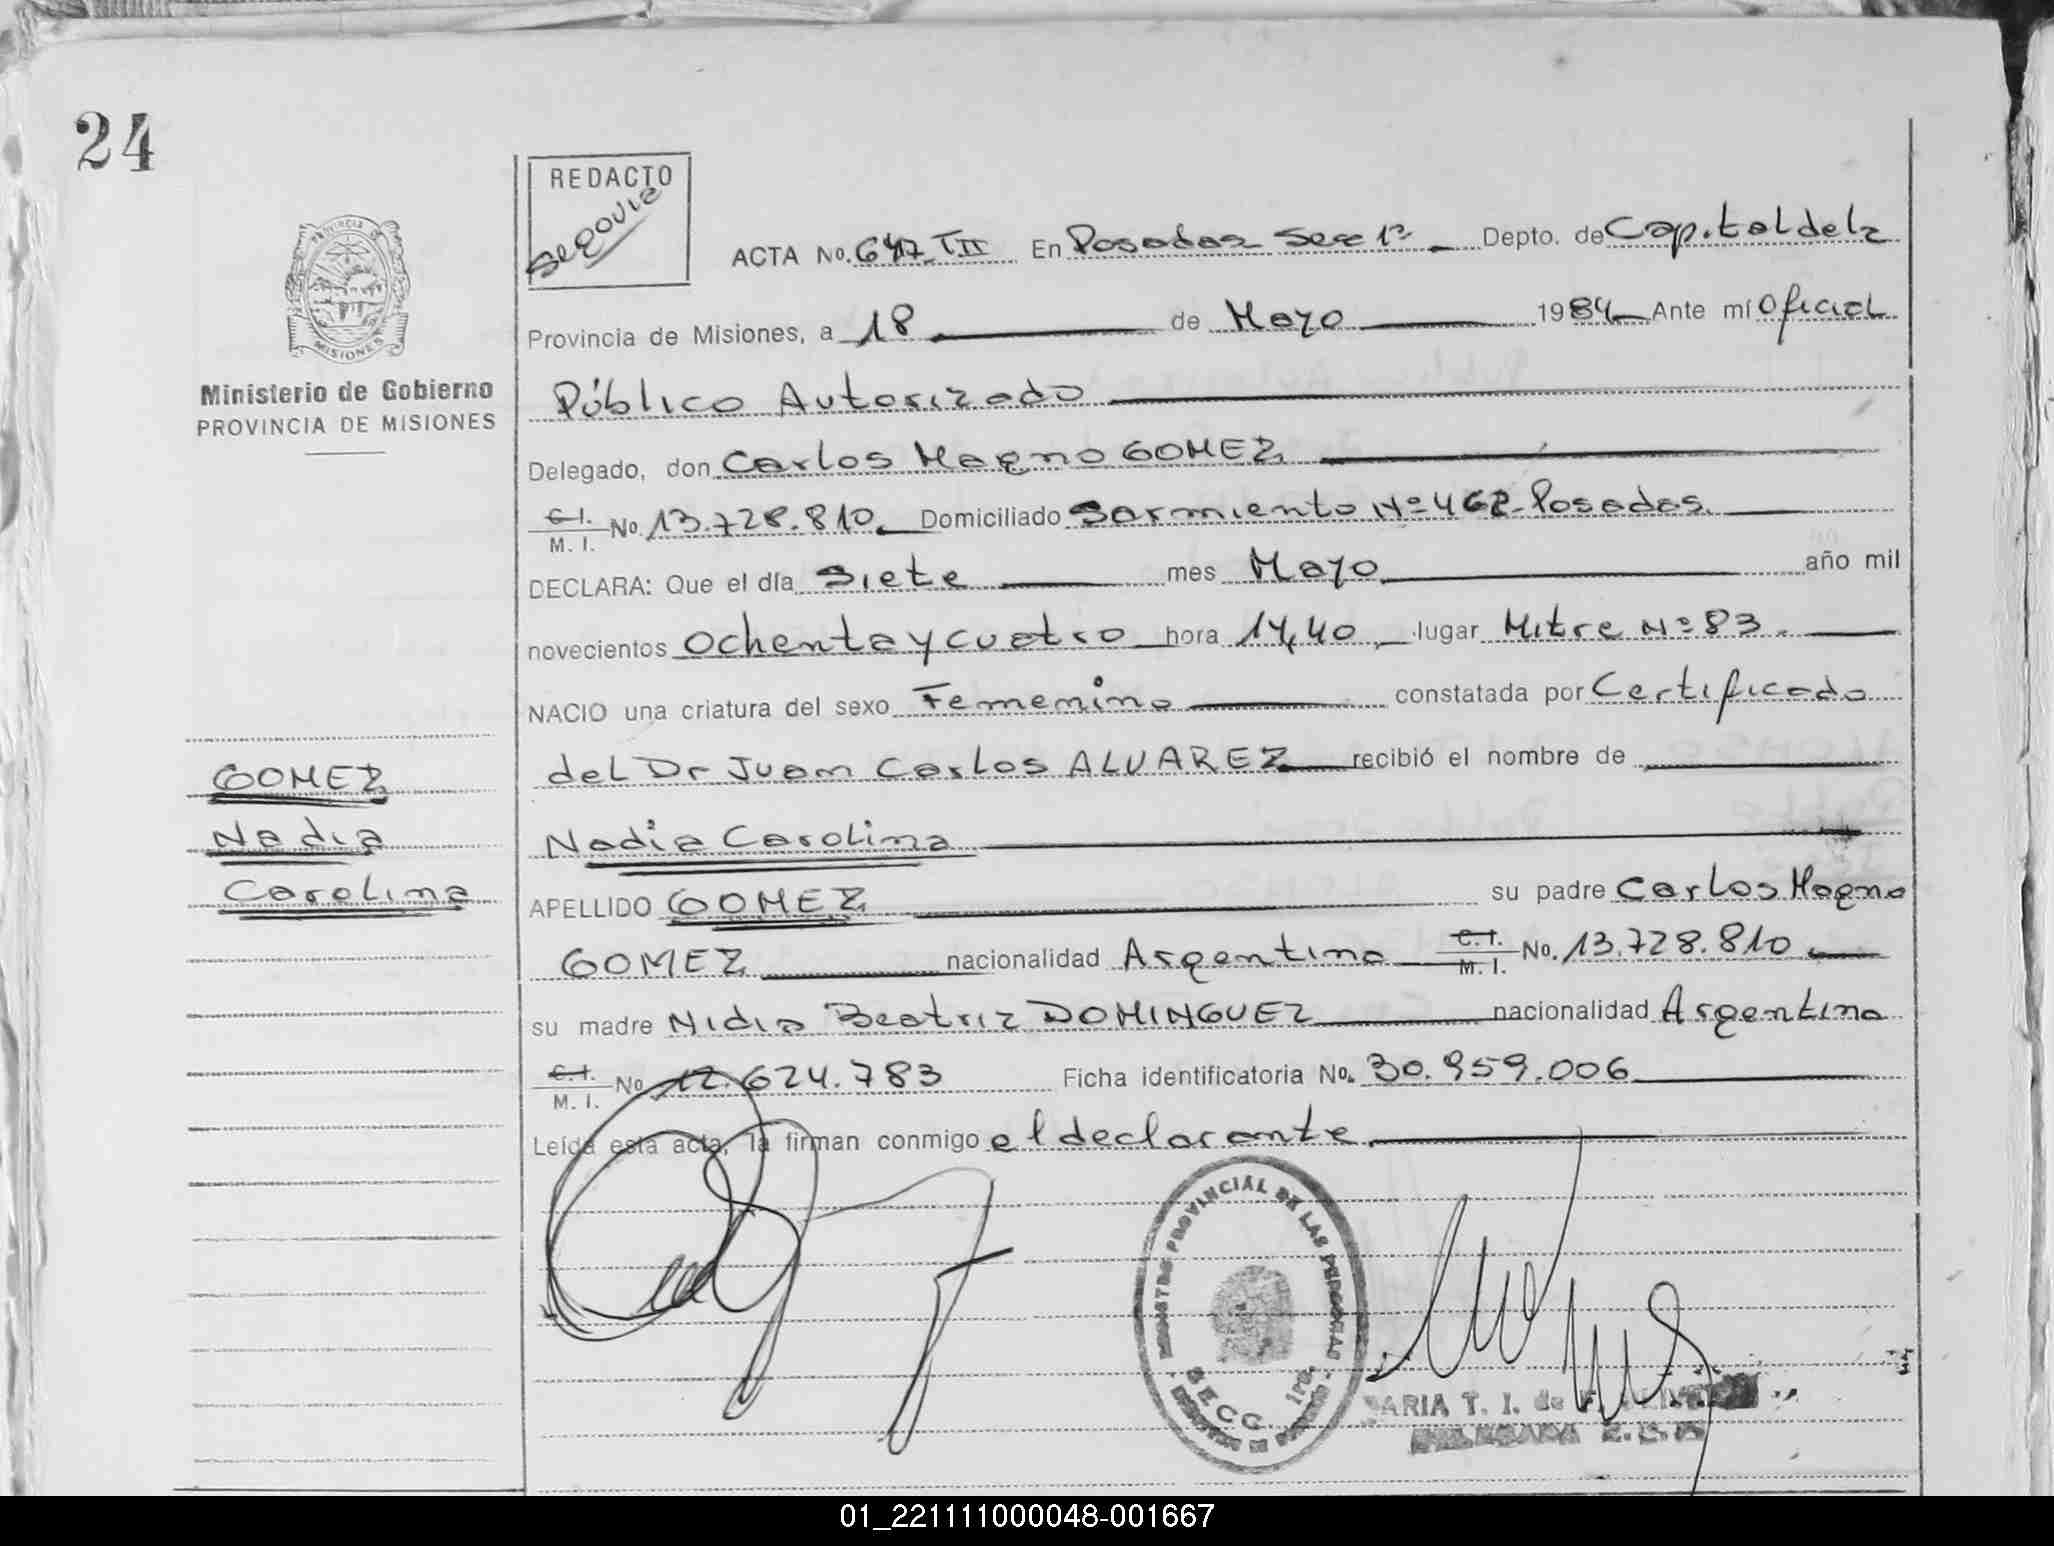 24
REDACTO
Segovia
PROVINCIA DE
MISIONES
Ministerio de Gobierno
PROVINCIA DE MISIONES
ACTA No. 647 TII En Posadas Secc 1ª Depto. de Capital de la
Provincia de Misiones, a 18 de Mayo 1984 Ante mí Oficial
Público Autorizado
Delegado, don Carlos Magno GOMEZ
C.I. M.I. No. 13.728.810. Domiciliado Sarmiento Nº 462 - Posadas.
DECLARA: Que el día siete mes Mayo año mil
novecientos Ochenta y cuatro hora 14,40 lugar Mitre Nº 83.
NACIO una criatura del sexo Femenino constatada por Certificado
del Dr Juan Carlos ALVAREZ recibió el nombre de
Nadia Carolina
APELLIDO GOMEZ su padre Carlos Magno
GOMEZ nacionalidad Argentina C.I. M.I. No. 13.728.810
su madre Nidia Beatriz DOMINGUEZ nacionalidad Argentina
C.I. M.I. No 12.624.783 Ficha identificatoria No. 30.959.006
Leída esta acta, la firman conmigo el declarante
GOMEZ
Nadia
Carolina
REGISTRO PROVINCIAL DE LAS PERSONAS
SECC. 1ra.
MARIA T. I. de
01_221111000048-001667